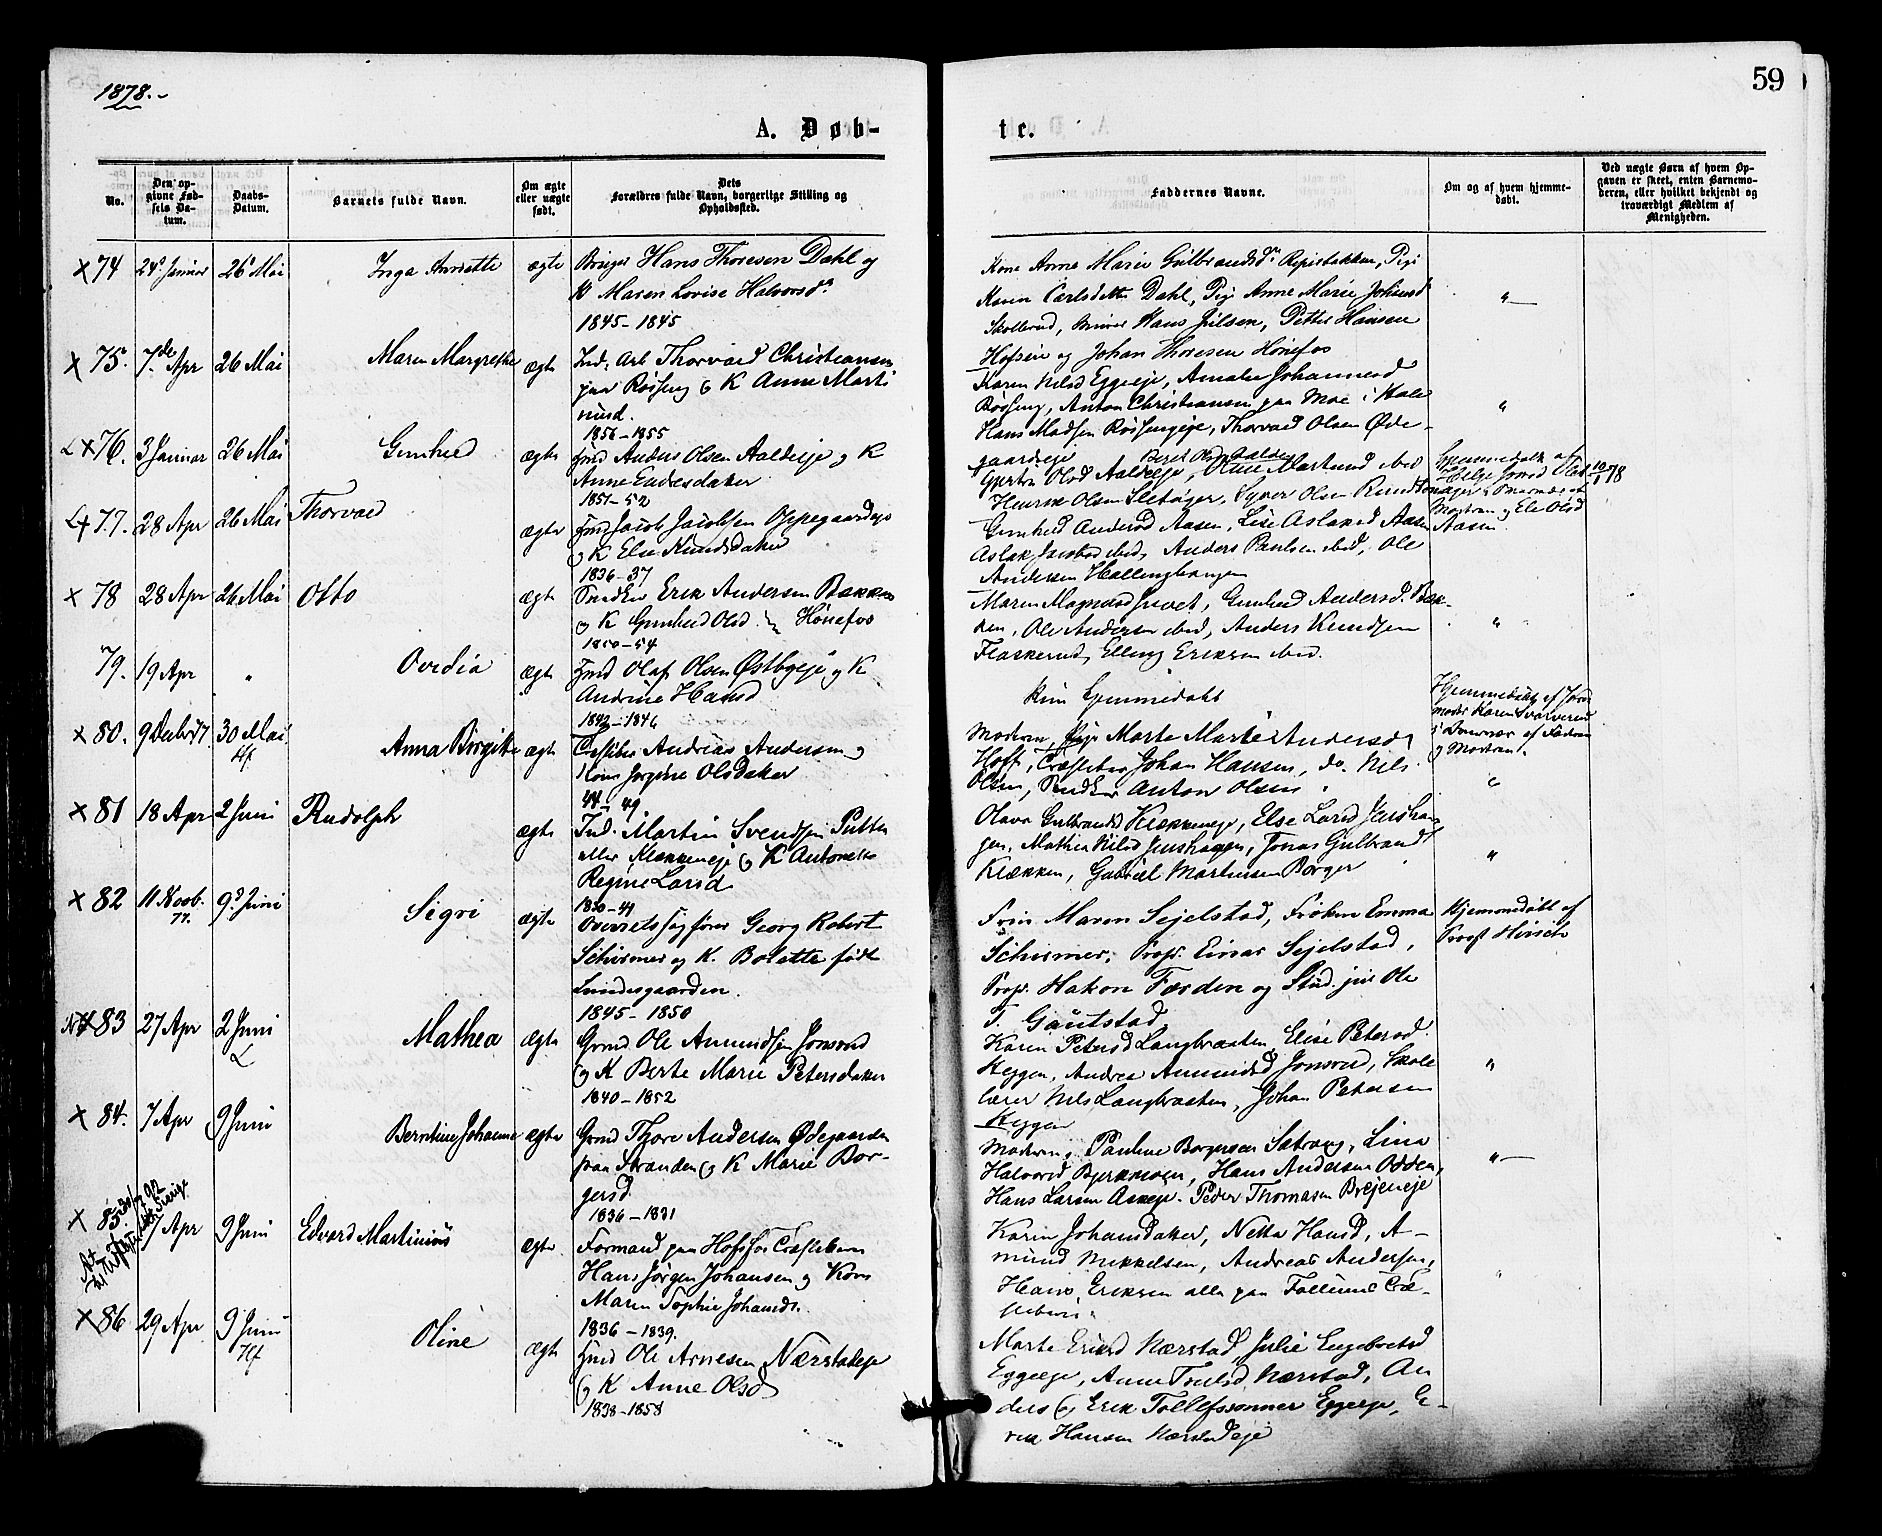 1878.
59
A. Døb-
te.
No.
Den opgivne Fødsels Datum.
Daabs-Datum.
Barnets fulde Navn.
Om ægte eller uægte født.
Dets Forældres fulde Navn, borgerlige Stilling og Opholdssted.
Faddernes Navne.
Om og af hvem hjemmedøbt.
Ved uægte Børn af hvem Opgaven er skeet, enten Barnemoderen, eller hvilket bekjendt og troværdigt Medlem af Menigheden.
74 24 Januar 26 Mai Inga Annette ægte Bruger Hans Thoresen Dahl og
K Maren Lovise Halvorsd
1845 - 1845
Kone Anne Marie Gulbrandsd Pige
Karen Carlsdtt Dahl, Pige Anne Marie Johansd
Hans Julsen, Petter Hansen
og Johan Thoresen Hønefos
75. 7de Apr 26 Mai Maren Margrethe ægte Ind. Arb Thorvald Christiansen
paa Røsseng og K Anne Marti
nusd.
1856 - 1855
Karen Nilsd Eggeeje, Amalie Johannesd
Røsseng, Anton Christiansen paa Moe i Hole
Hans Madsen Røssengeje, Thorvald Olsen Øde-
gaardseje
76. 3 Januar 26 Mai Gunhild ægte Ind Anders Olsen Aaldseje og K
Anne Endresdater
1851 - 52
Henrik Olsen Syver Olsen
Hjemmedøbt af
77. 28 Apr 26 Mai Thorvald ægte Ind Jacob Jacobsen Oppegaardseje
og K Else Knudsdater
1836 - 37
Gunhild Andersd Aasen, Lise Aslaksd Aasen
Aslak Jacobsd ibid, Anders Paulsen ibid, Ole
Andersen Hallingbangen
78 28 Apr 26 Mai Otto ægte Snedker Erik Andersen Bakken
og K Gunhild Olsd Hønefos
1850 - 54
Maren Gunhild Andersd. Bak-
ken, Ole Andersen ibid, Anders Knudsen
Flaskerud, Elling Eriksen ibid.
79. 19 Apr " Ovedia ægte Ind Olaf Olsen Østbyeje og K
Andrine Hansd
1842 - 1846
kun hjemmedøbt
Hjemmedøbt af Jord
moder Karen Svarverud
i Overvær af Fadren
og Modren.
80. 9 Decbr 77 30 Mai Anna Birgitte ægte Træsliber Andreas Andersen og
Kone Jørgine Olsdater
44 - 49
Modren, Pige Marte Marie Andersd
Hoff, Træsliber Johan Hansen, do. Nils
Olsen, Snedker Anton Olsen.
"
81 18 Apr 2 Juni Rudolph ægte Ind. Martin Svendsen Putten
eller Klækkeneje og K Antonette
Regine Larsd
1850 - 49
Olava Gulbrandsd Klækkeneje, Else Larsd Jenshau
gen, Mathea Nilsd Jenshaugen, Jonas Gulbrands
Klækken, Gabriel Martinsen Borger
"
82 11 Novb. 77. 9 Juni Sigri ægte Overretssagfører Georg Robert
Schirmer og K. Bolette født
Lindesgaarden.
1845 - 1850
Fru Maren Sejelstad, Frøken Emma
Schirmer, Prop. Einar Sejelstad,
Prop. Hakon Færden og Stud. jur. Ole
T. Gautstad
Hjemmedøbt af
Provst Hirsch
83 27 Apr 2 Juni Mathea Ægte Grmd Ole Amundsen Jonsrud
og K Berte Marie Petersdater
1840 - 1852
Karen Petersd Langbraaten, Elise Petersd
Heggen, Andrea Amundsd Jonsrud, Skole
lærer Nils Langbraaten, Johan Petersen
Heggen
"
84. 7 Apr 9 Juni Berntine Johanne ægte Grmd Thore Andersen Ødegaarden
paa Stranden og K Marie Bor-
gersd.
1836 - 1831
Modren, Pauline Borgersen Sætrang, Lina
Halvorsd Hans Andersen Odden,
Hans Larsen Askeje. Peder Thomasen Brejeneje
85 7 Apr 9 Juni Edvard Martinius ægte Formand paa Hofsfos Træsliberi
Hans Jørgen Johansen og Kone
Maren Sophie Johansdr.
1836 - 1839.
Karin Johansdater, Netta Hansd, A-
mund Mikkelsen, Andreas Andersen,
Hans Eriksen alle paa Follum Træ-
sliberi.
86 29 Apr 9 Juni Oline ægte Ind Ole Arnesen Nærstadeje
og K Anne Olsd
1838 - 1858
Marte Eriksd Nærstad, Julie Engebretsd
Eggeeje, Anne Truelsd Nærstad, An
ders og Erik Tollefssønner Eggeeje, E-
rik Hansen Nærstadeje